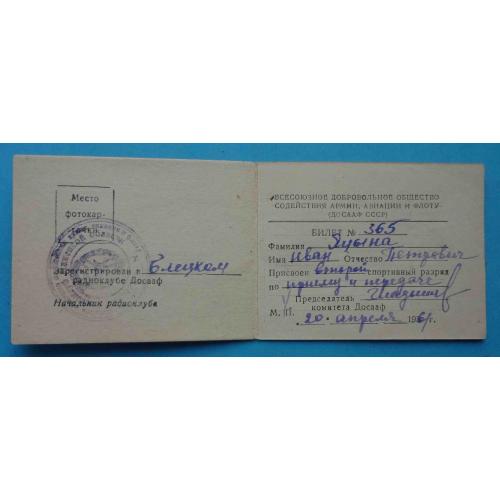 Место
фотокар-
точки
Зарегистрирован в Елецком
радиоклубе Досааф
Начальник радиоклуба
ВСЕСОЮЗНОЕ ДОБРОВОЛЬНОЕ ОБЩЕСТВО
СОДЕЙСТВИЯ АРМИИ, АВИАЦИИ И ФЛОТУ
(ДОСААФ СССР)
БИЛЕТ № 365
Фамилия
Имя Иван Отчество Петрович
Присвоен второй спортивный разряд
по приему и передаче
Председатель
комитета Досааф
М. П.
20 апреля 1961г.